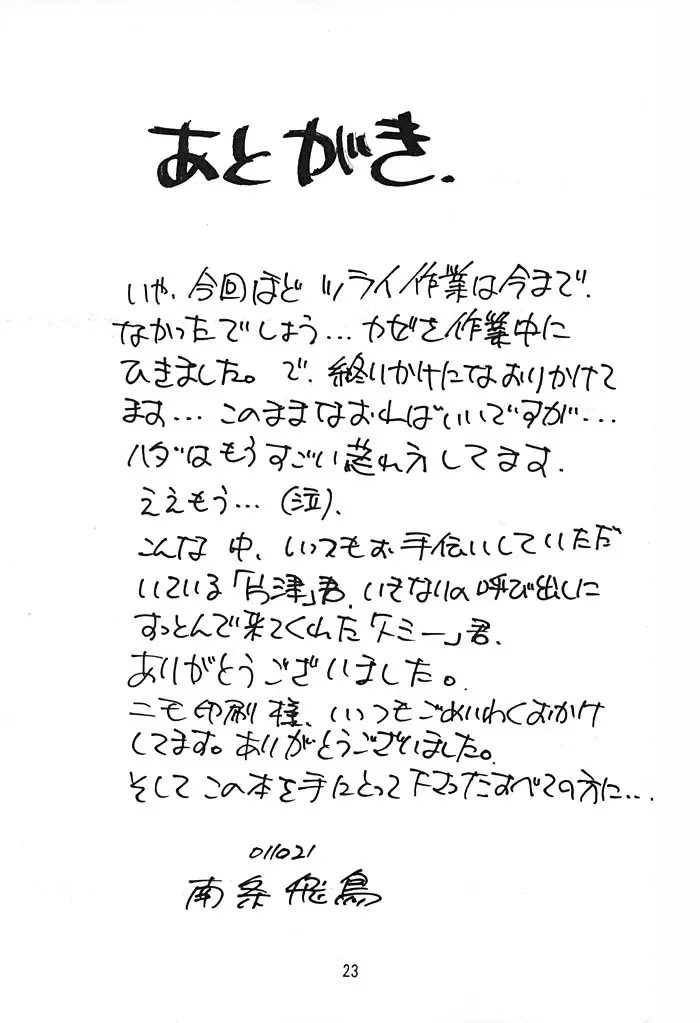 あとがき.
いや、今回ほどツライ作業は今まで、
なかったでしょう…カゼを作業中に
ひきました。で、終りかけになおりかけて
ます…このままなおればいいですが…
ハダはもうすごい荒れ方してます.
ええもう…(泣).
こんな中、いつもお手伝いしていただ
いている「片津」君、いきなりの呼び出しに
すっとんで来てくれた「クミー」君、
ありがとうございました。
ニモ印刷様、いつもごめいわくおかけ
してます。ありがとうございました。
そしてこの本を手にとって下さったすべての方に…
011021
南条飛鳥
23